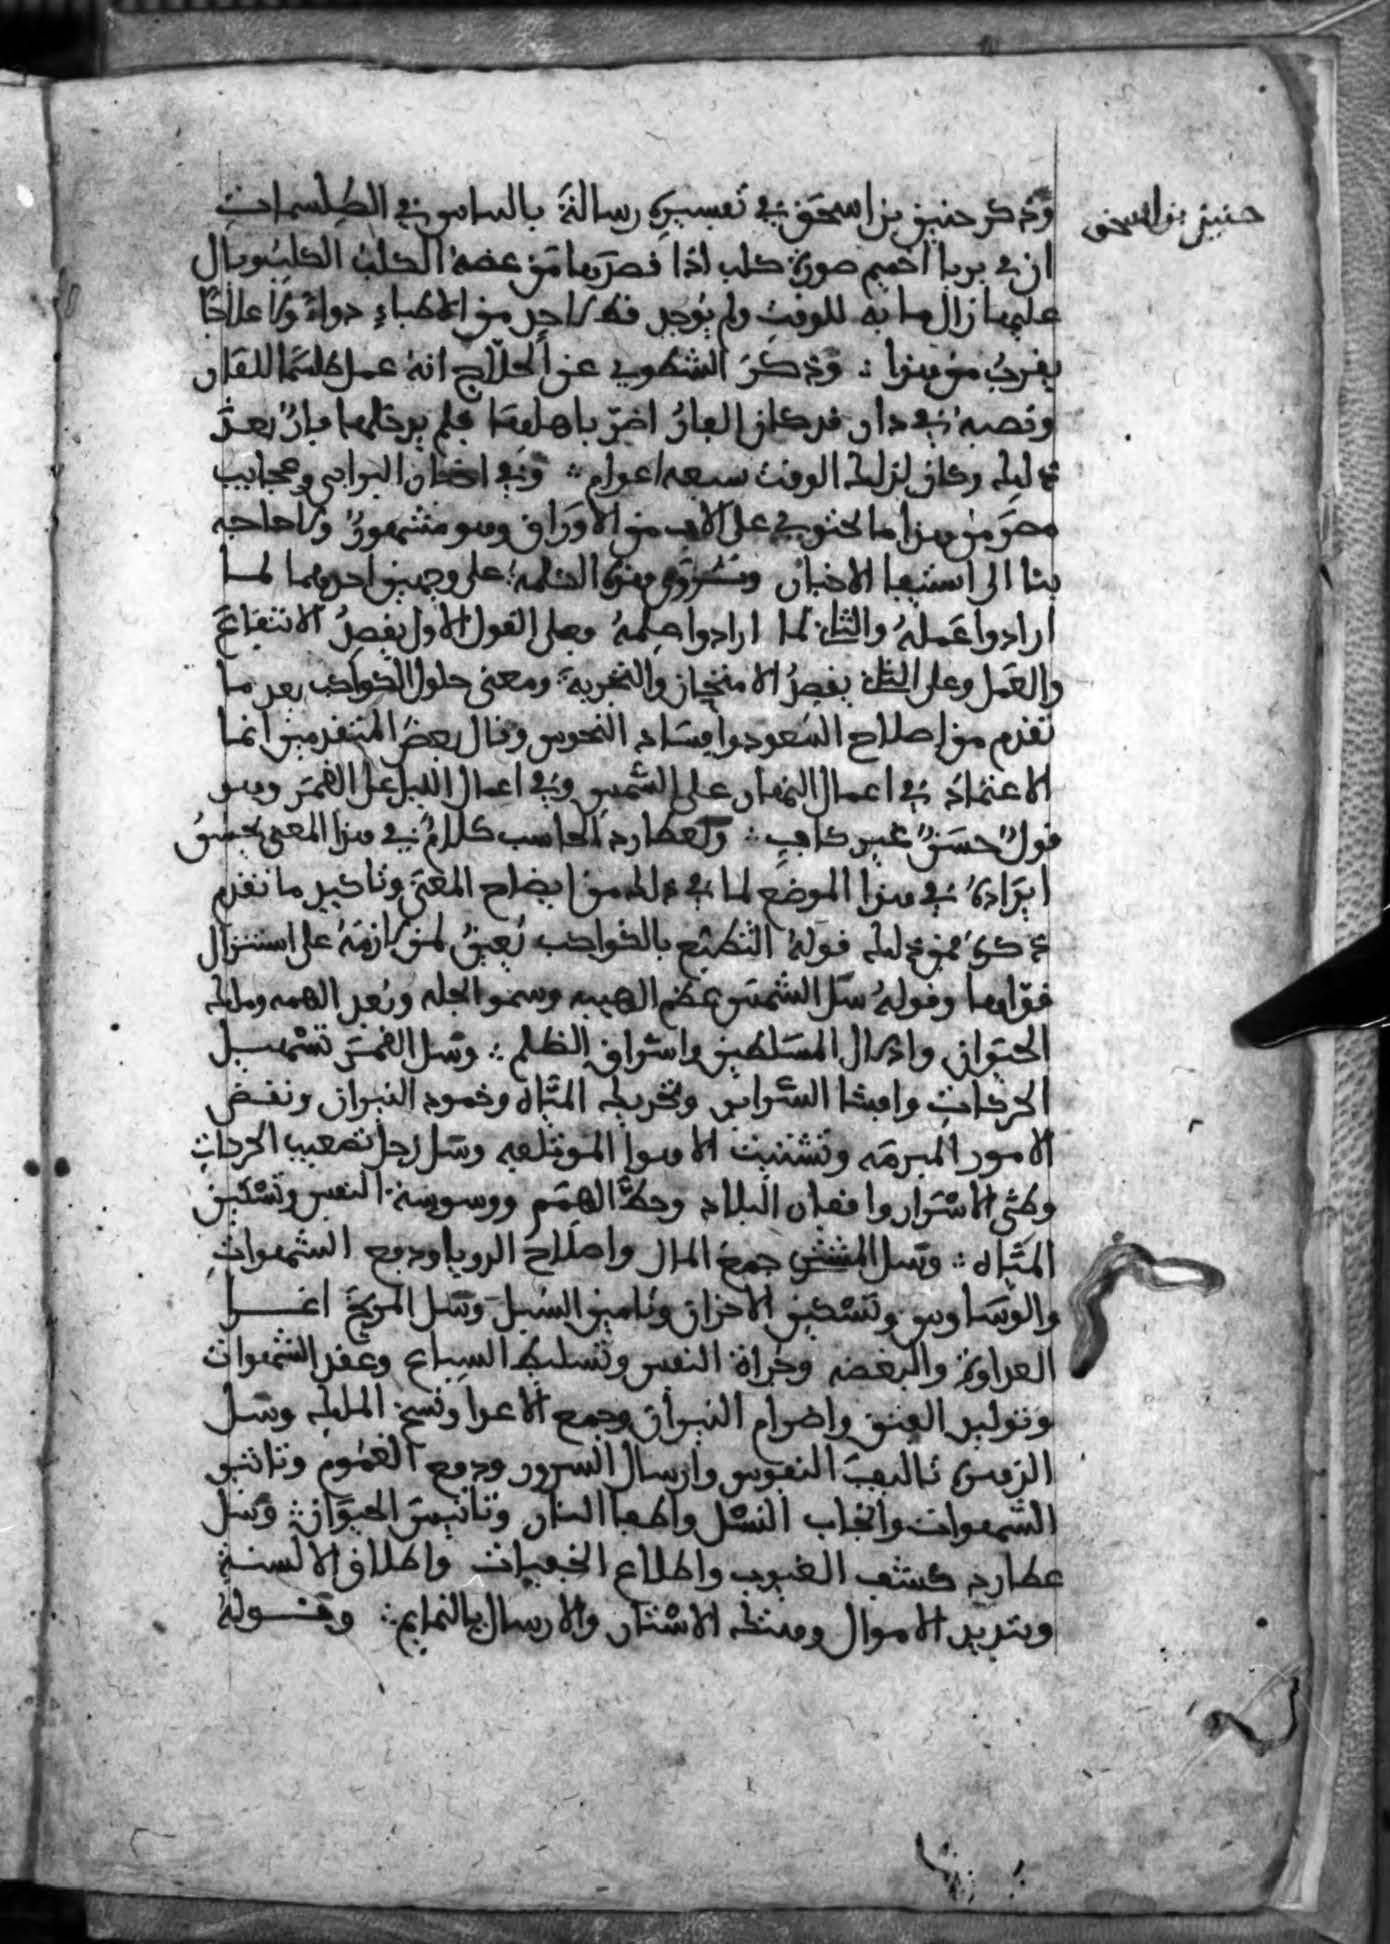 حنين بن اسحق
وذكر حنين بن اسحق في تفسيره رسالة بالساس في الطلسمات
ان في بربا اخميم صورة كلب اذا قصدها من عضه الكلب الكلب وبال
عليها زال ما به للوقت ولم يوجد قط لاحد من الاطباء دواء ولا علاجا
يقرب من هذا وذكر الشطوي عن الحلاج انه عمل طلسما للفار
ونصبه في دار قد كان الفار اضر باهلها فلم يدخلها فار بعد
ذلك وكان لذلك الوقت سبعة اعوام وفي اخبار البرابي وعجايب
مصر من هذا ما يحتوي على الالاف من الاوراق وهو مشهور ولا حاجه
بنا الى استيفا الاخبار وتروى هذه الكلمة على وجهين احدهما لما
ارادوا عمله والثاني لما ارادوا علمه وعلى القول الاول يقصد الانتفاع
والعمل وعلى الثاني يقصد الامتحان والتجربة ومعنى حلول الكواكب بعد ما
تقدم من اصلاح السعود وافساد النحوس وقال بعض المتقدمين انما
الاعتماد في اعمال النهار على الشمس وفي اعمال الليل على القمر وهو
قول حسن غير كاف ولعطارد الحاسب كلام في هذا المعنى يحسن
ايراده في هذا الموضع لما في ذلك من ايضاح المعنى وتاكيد ما تقدم
ذكره فمن ذلك قوله التطبع بالكواكب يعين لمن لازمه على استنزال
قواها وقوله سل الشمس عظم الهيبه وسمو الجله وبعد الهمه وملك
الحيوان واذلال المسلطين واشراق الظلم وسل القمر تسهيل
الحركات وافشا السراير وتحريك المياه وخمود النيران ونقض
الامور المبرمه وتشتيت الاهوا الموتلفه وسل زحل تصعيب الحركات
وكتم الاسرار واقفار البلاد وحط الهمم ووسوسة النفس وتسكين
المياه وسل المشتري جمع المال واصلاح الرويا ودفع الشهوات
والوساوس وتسكين الاحزان وتامين السبل وسل المريخ اغرا
العداوة والبغضه وجراة النفس وتسليط السباع وعقد الشهوات
وتوليد الفتن واضرام النيران وجمع الاعدا ونسخ الملك وسل
الزهرة تاليف النفوس وارسال السرور ودفع الغموم وتاتير
الشهوات وانجاب النسل واطفا النار وتانيس الحيوان وسل
عطارد كشف الغيوب واطلاع الخفيات واطلاق الالسنة
وتبديد الاموال وهتك الاستار والارسال بالنمايم وقوله